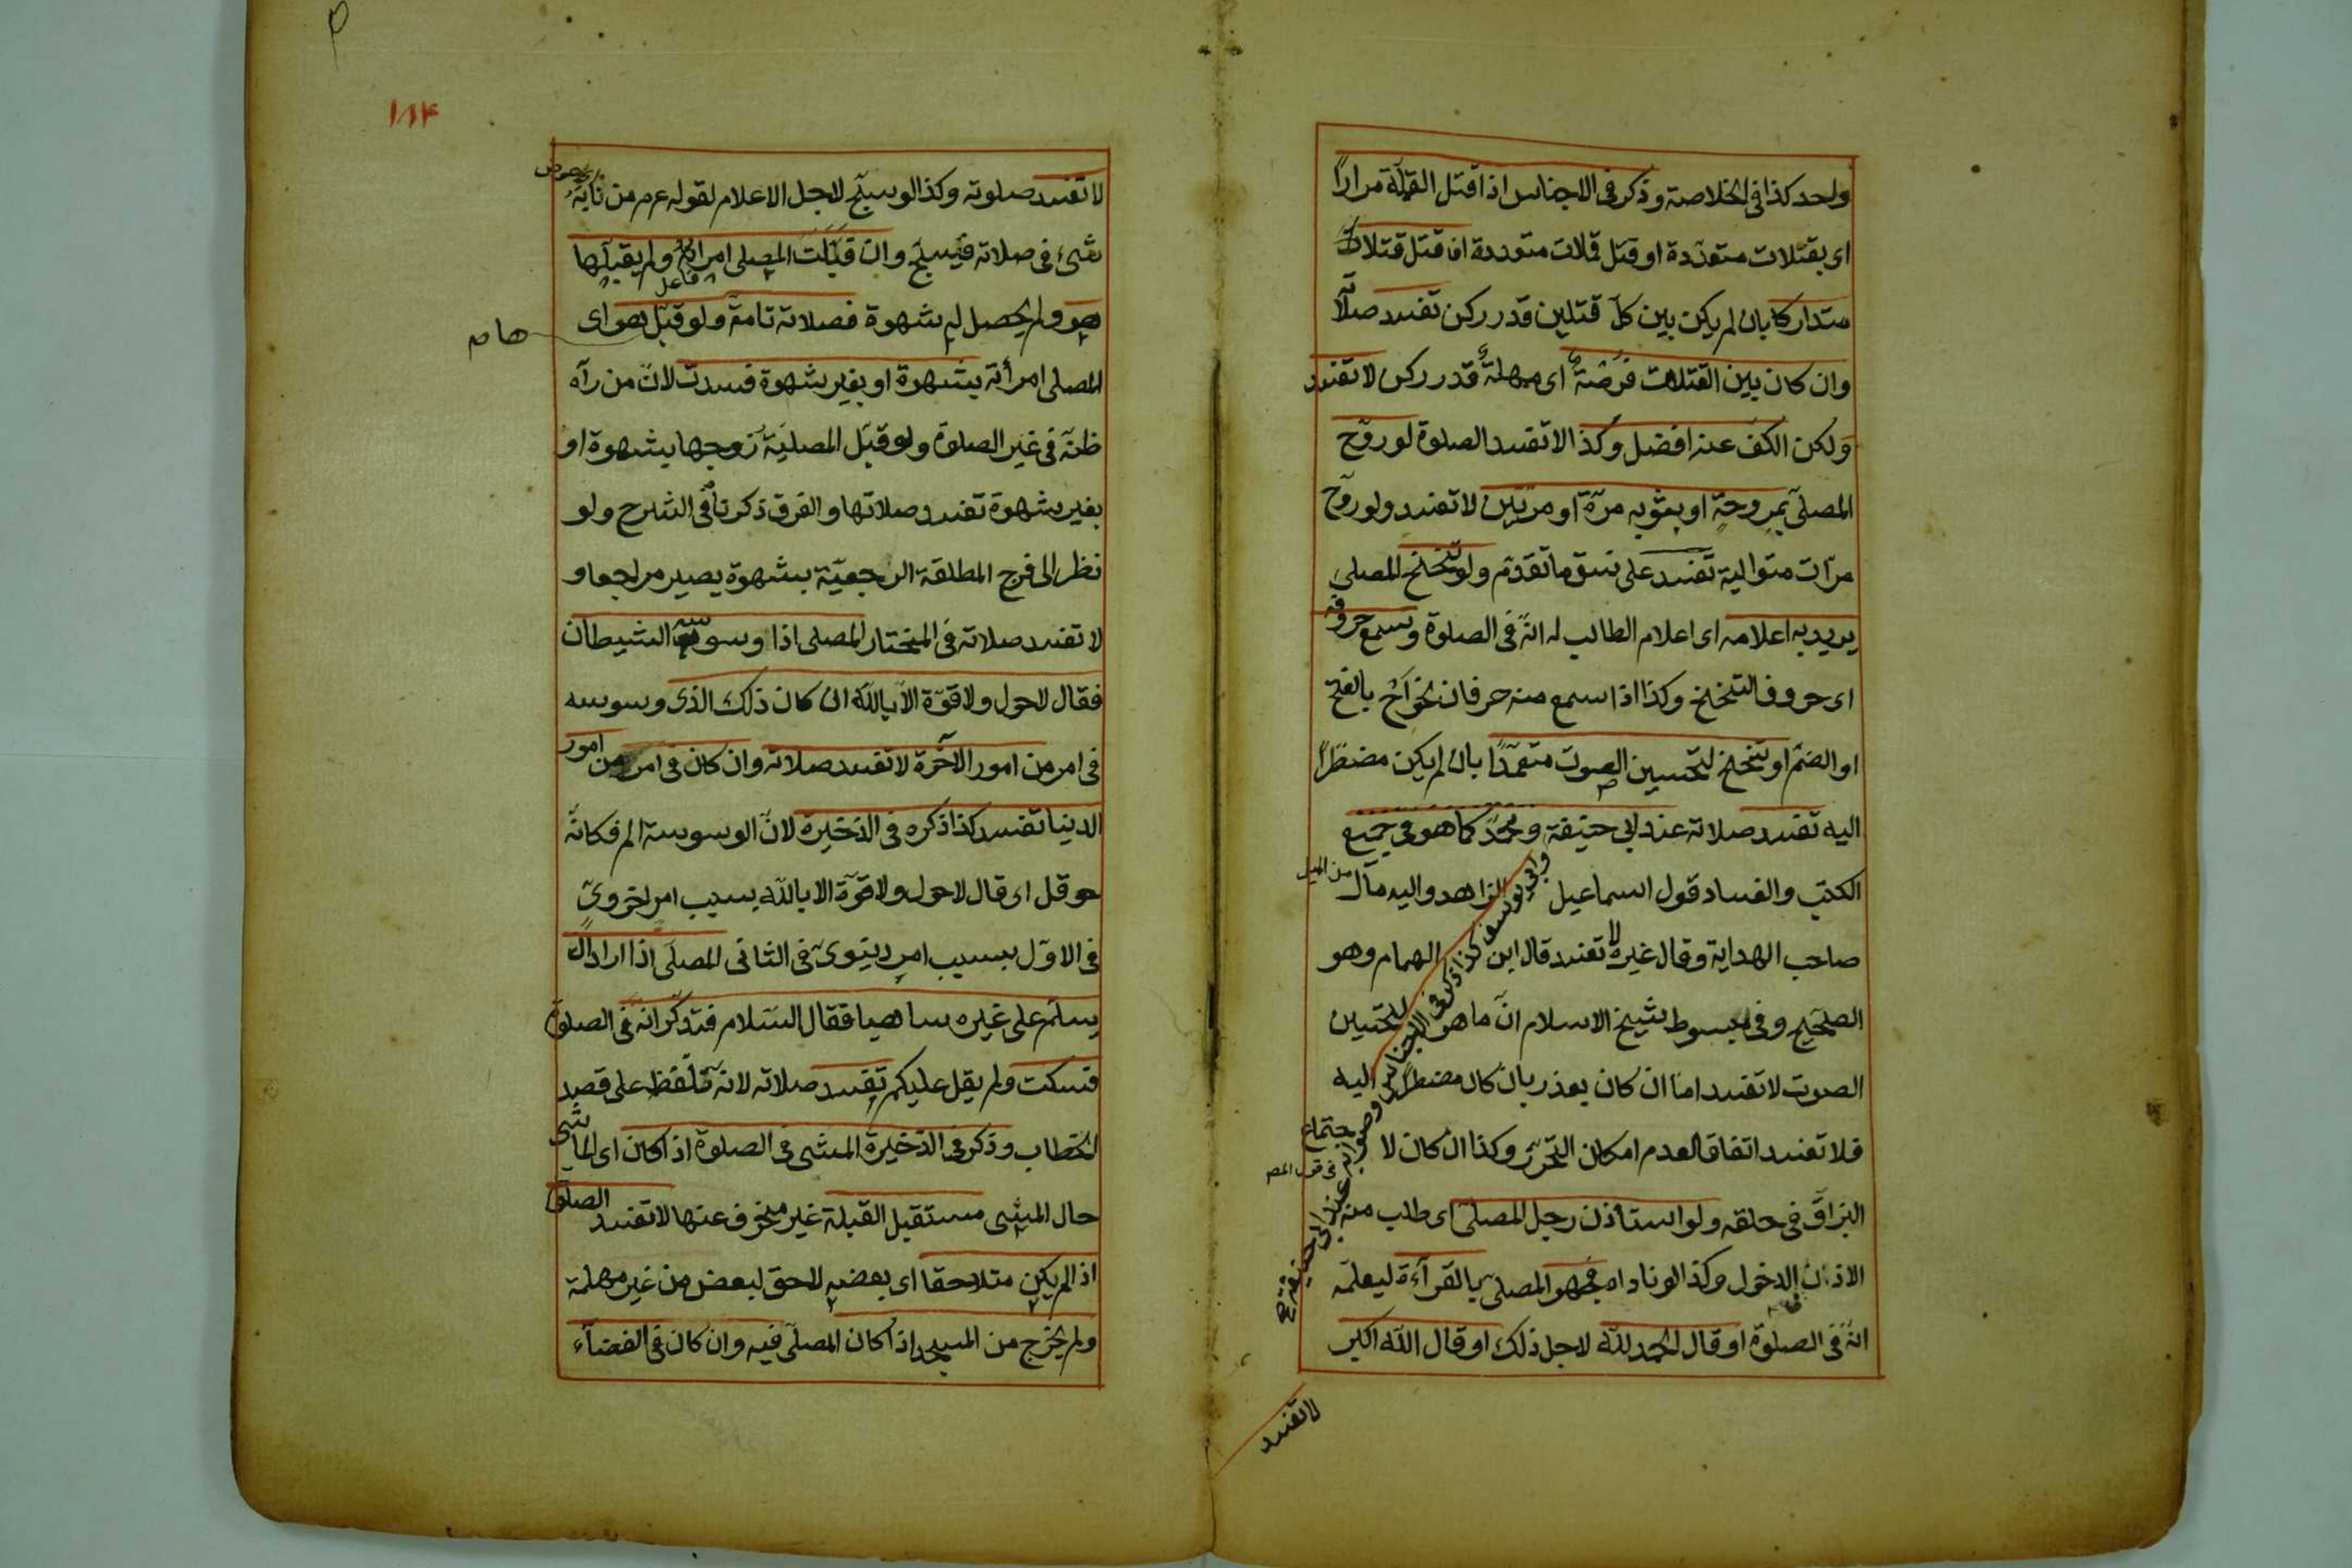 واحد كذا فى الخلاصة وذكر فى الاجناس اذا قتل القملة مرارًا
اى بقتلات متعددة او قتل قملات متعددة ان قتل قتلات
متداركا بان لم يكن بين كل قتلين قدر ركن تفسد صلا
وان كان بين القتلات فرصة اى مهلة قدر ركن لا تفسد
ولكن الكف عنه افضل وكذا لا تفسد الصلوة لو روّح
المصلى بمروحة او بثوبه مرة او مرتين لا تفسد ولو روّح
مرّات متوالية تفسد على نسق ما تقدّم ولو تنحنح المصلى
يريد به اعلامه اى اعلام الطالب له انّه فى الصلوة وسمع حروفه
اى حروف التنحنح وكذا اذا سمع منه حرفان نحو أح بالفتح
او الضم او تنحنح لتحسين الصوت متعمّدًا بان لم يكن مضطرًا
اليه تفسد صلاته عند ابى حنيفة ومحمد كما هو فى جميع
الكتب والفساد قول اسماعيل الزاهد واليه مال من الميل
صاحب الهداية وقال غيره لا تفسد قال ابن الهمام وهو
الصحيح وفى مبسوط شيخ الاسلام انّ ما هو لتحسين
الصوت لا تفسد امّا ان كان بعذر بان كان مضطرًا اليه
فلا تفسد اتفاقا لعدم امكان التحرّز وكذا ان كان لا جتماع
البزاق فى حلقه ولو استأذن رجل المصلى اى طلب منه
الاذن فى الدخول وكذا لو ناداه فجهر المصلى بالقرآءة ليعلمه
انّه فى الصلوة او قال الحمد لله لاجل ذلك او قال الله اكبر
لا تفسد
١٨٤
لا تفسد صلوته وكذا لو سبّح لاجل الاعلام لقوله عم من نابه
شىء فى صلاته فليسبح وان قبّلت المصلى امرأته ولم يقبلها
فاعل
هو ولم يحصل له شهوة فصلاته تامة ولو قبّل هو اى
المصلى امرأته بشهوة او بغير شهوة فسدت لانّ من رآه
ظنّه فى غير الصلوة ولو قبّل المصلية زوجها بشهوة او
بغير شهوة تفسد صلاتها والفرق ذكرناه فى الشرح ولو
نظر الى فرج المطلقة الرجعيّة بشهوة يصير مراجعا و
لا تفسد صلاته فى المختار المصلى اذا وسوسه الشيطان
فقال لا حول ولا قوّة الّا بالله ان كان ذلك الذى وسوسه
فى امر من امور الآخرة لا تفسد صلاته وان كان فى امر من امور
الدنيا تفسد كذا ذكره فى الذخيرة لانّ الوسوسة الم فكانّه
حوقل اى قال لا حول ولا قوّة الا بالله بسبب امر اخروىّ
فى الاوّل بسبب امر دنيوىّ فى الثانى المصلى اذا اراد ان
يسلّم على غيره ساهيا فقال السّلام فتذكّر انّه فى الصلوة
فسكت ولم يقل عليكم تفسد صلاته لانّه تلفّظ على قصد
الخطاب وذكر فى الذخيرة المشى فى الصلوة اذا كان اى الماشى
حال المشى مستقبل القبلة غير منحرف عنها لا تفسد الصلوة
اذا لم يكن متلاحقا اى بعضه لاحق لبعض من غير مهلة
ولم يخرج من المسجد اذا كان المصلّى فيه وان كان فى الفضآء